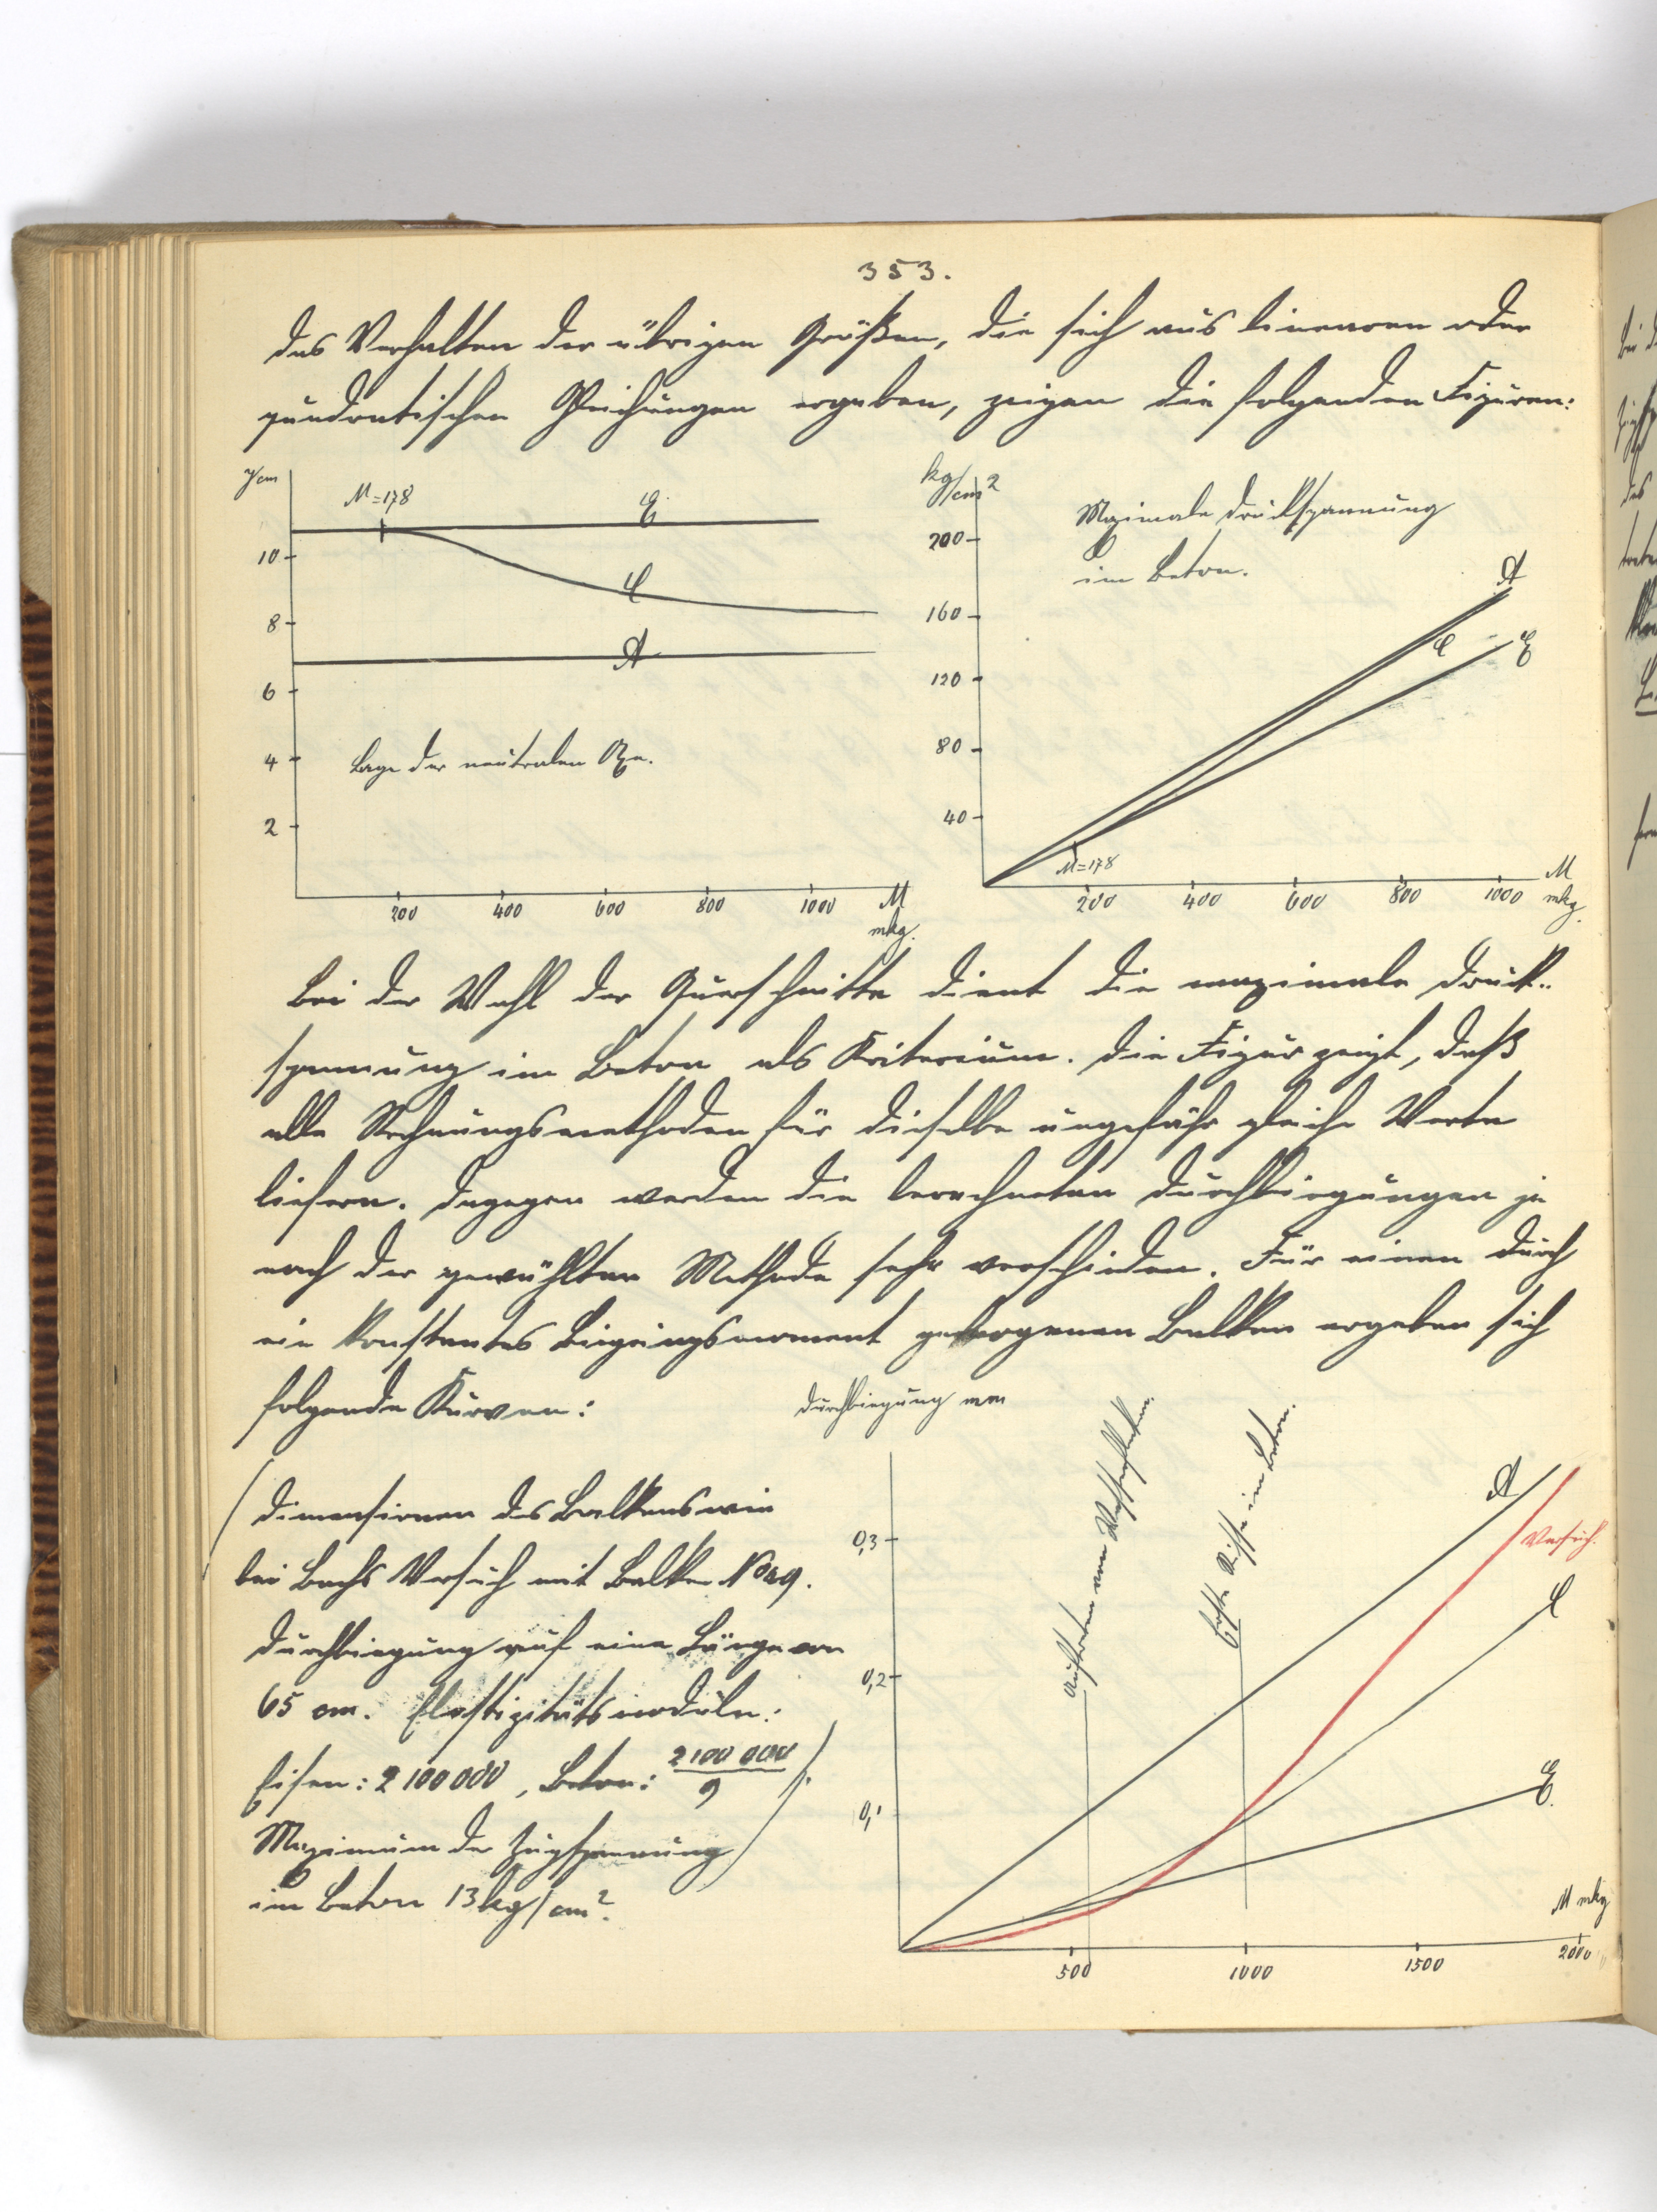 353.
das Verhalten der übrigen Größen, die sich aus linearen oder
quadratischen Gleichungen ergeben, zeigen die folgenden Figuren:
y cm
M=178
E
C
A
10
8
6
4
2
Lage der neutralen Axe.
200 400 600 800 1000 M
mkg.
kg/cm2
Maximale Druckspannung
im Beton.
200
160
120
80
40
A
C
E
M=178
200 400 600 800 1000 M
mkg.
Bei der Wahl der Querschnitte dient die maximale Druck-
spannung im Beton als Kriterium. Die Figur zeigt, daß
alle Rechnungsmethoden für dieselbe ungefähr gleiche Werte
liefern. Dagegen werden die berechneten Durchbiegungen je
nach der gewählten Methode sehr verschieden. Für einen durch
ein konstantes Biegungsmoment gebogenen Balken ergeben sich
folgende Kurven:
Durchbiegung mm
(Dimensionen des Balkens wie
bei Bachs Versuch mit Balken No 29.
Durchbiegung auf eine Länge von
65 cm. Elastizitätsmoduln:
Eisen: 2 100 000, Beton: 2 100 000 / 9).
Maximum der Zugspannung
im Beton 13 kg/cm2.
Auftreten von Wasserflecken.
Erste Risse im Beton.
0,3
0,2
0,1
A
Versuch.
C
E.
M mkg
500 1000 1500 2000